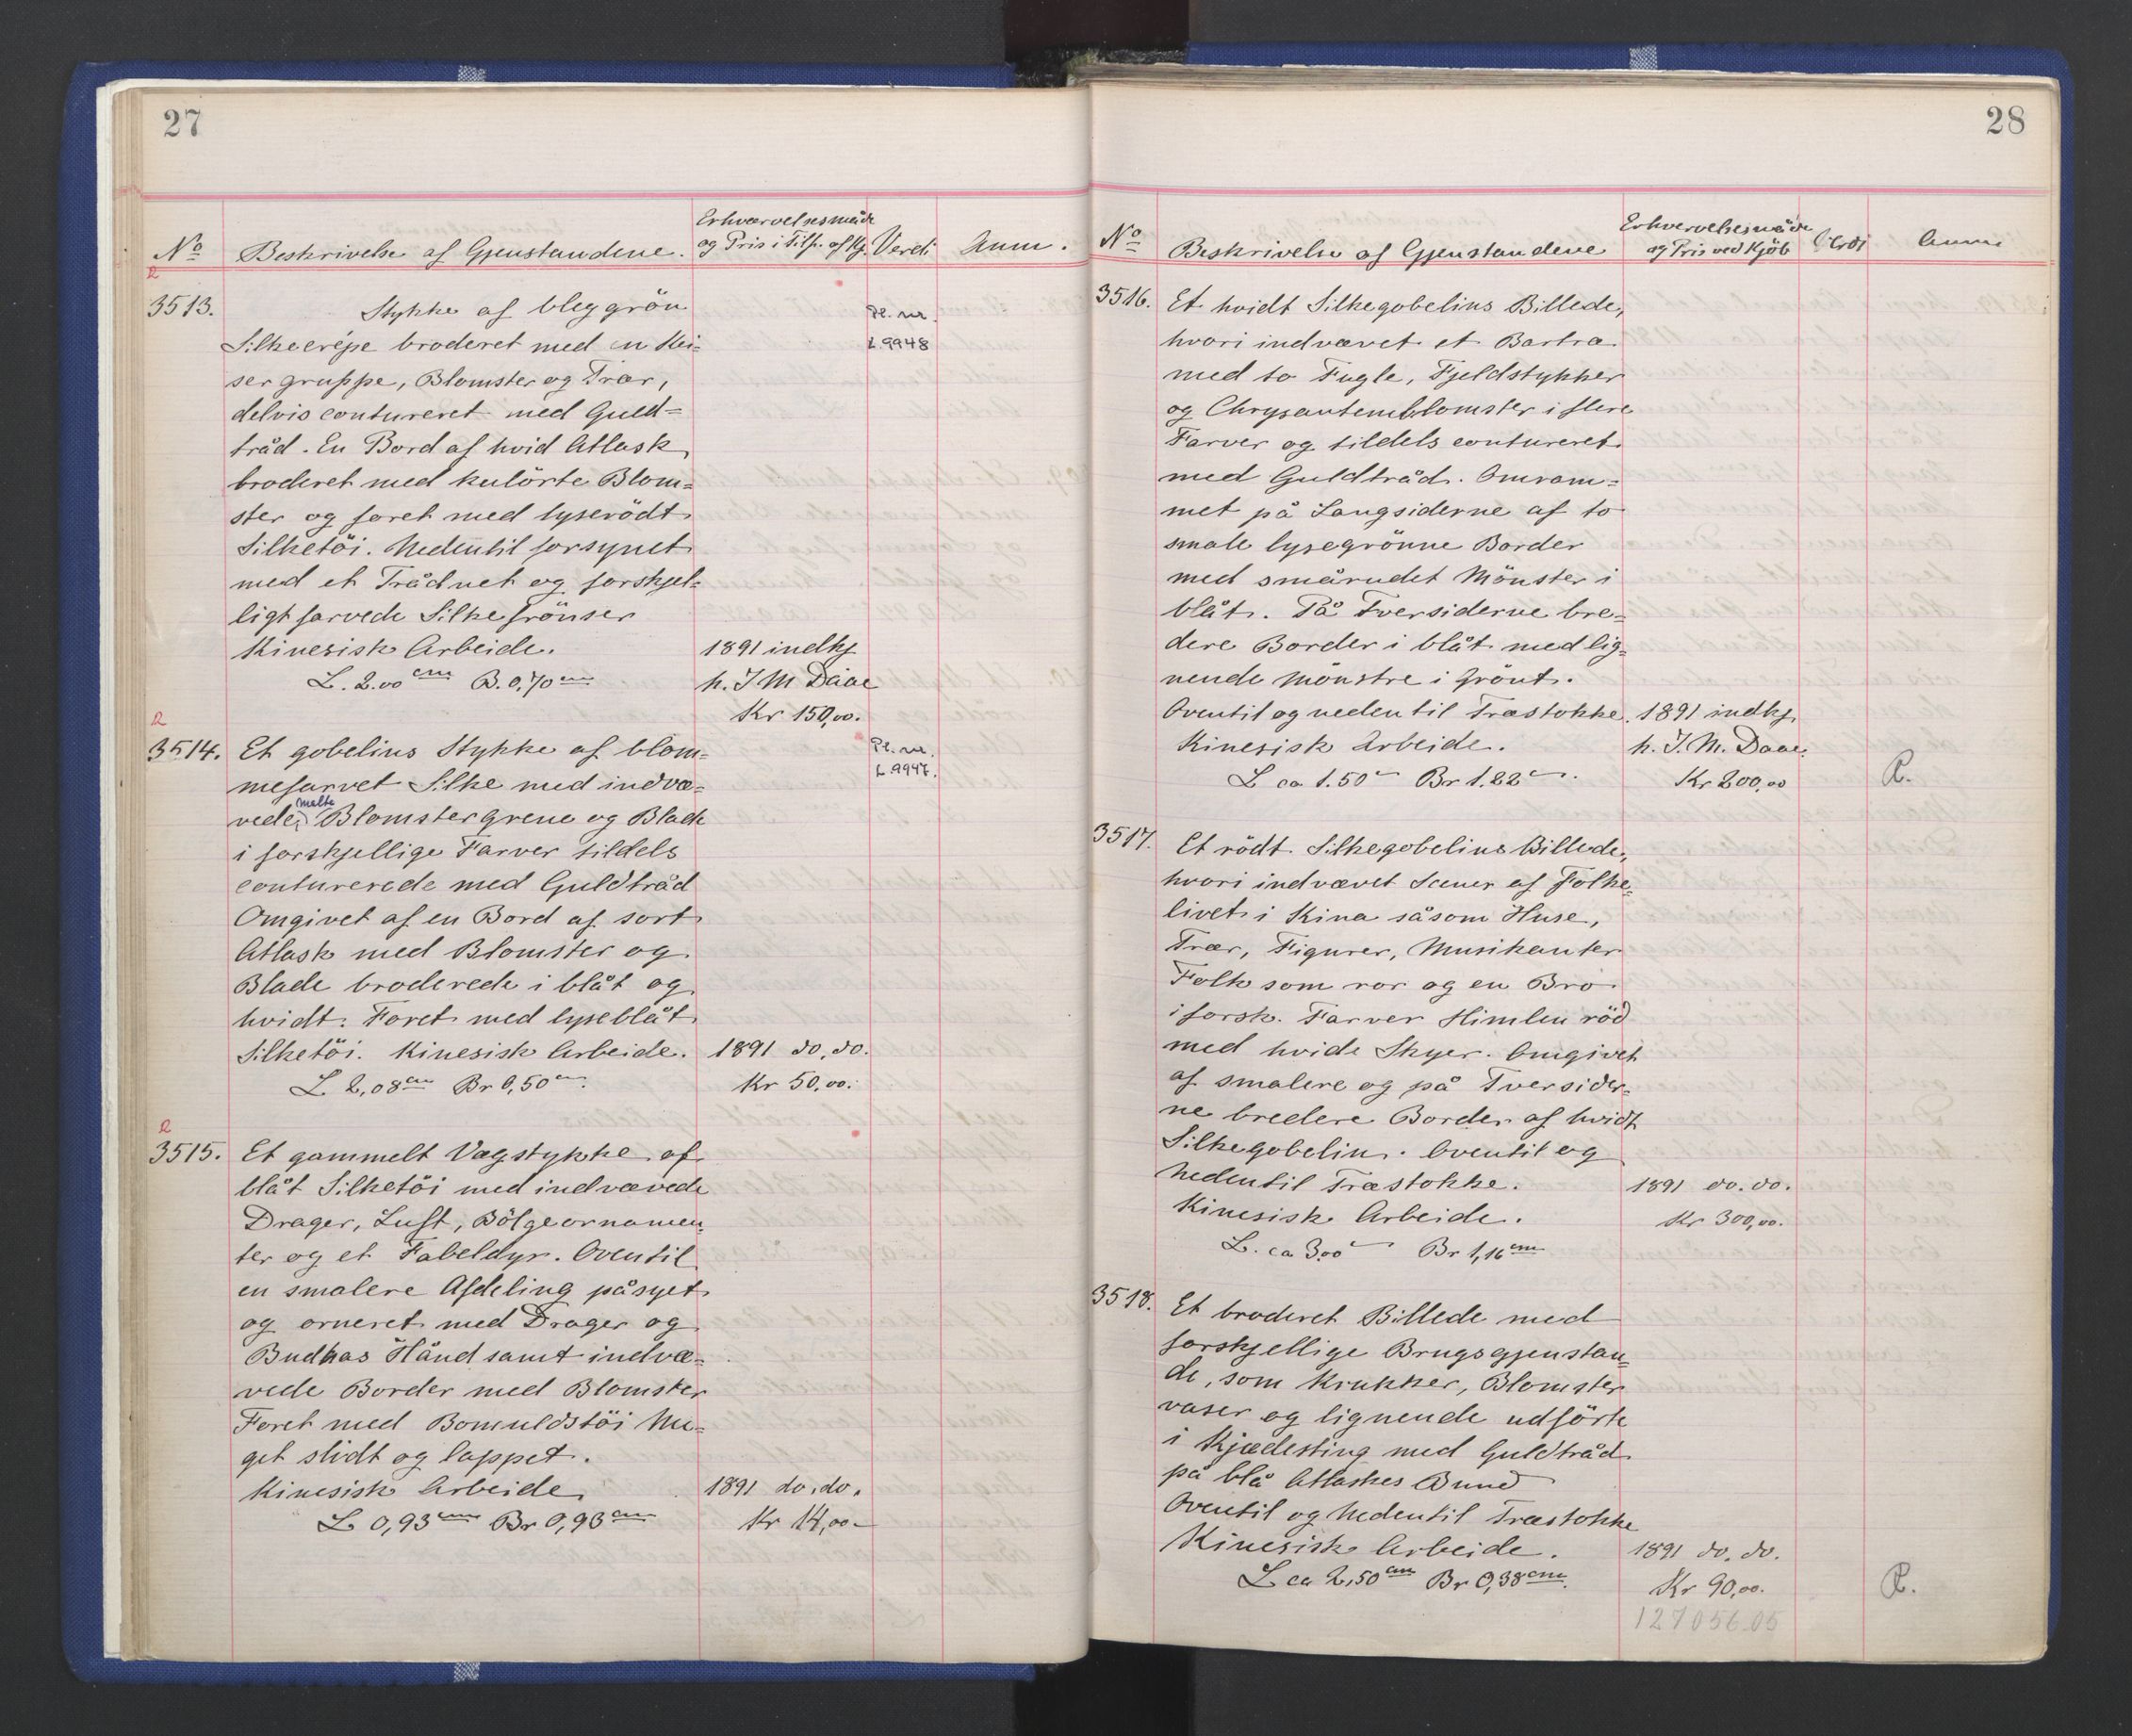 27
No Beskrivelse af Gjenstandene. Erhvervelsesmåde og Pris i Tilf. af Kj. Verdi Anm.
R
3513. Stykke af bleggrön Pl. nr.
Silkecrépe broderet med en Kei= L.9948
ser gruppe, Blomster og Trær,
delvis contureret med Guld=
tråd. En Bord af hvid Atlask
broderet med kulörte Blom=
ster og foret med lyserödt
Silketöi. Nedentil forsynet
med et Trådnet og forskjel=
ligt farvede Silkefrönser
Kinesisk Arbeide. 1891 indkj
L. 2.00 cm B. 0,70 cm h. J M Daae
Kr 150,00.
R
3514. Et gobelins Stykke af blom= Pl. nr.
mefarvet Silke med indvæ= L.9947.
vede, malte Blomstergrene og Blade
i forskjellige Farver tildels
conturerede med Guldtråd
Omgivet af en Bord af sort
Atlask med Blomster og
Blade broderede i blåt og
hvidt. Foret med lyseblåt
Silketöi. Kinesisk Arbeide. 1891 do. do.
L 2,08 cm Br 0,50 cm. Kr 50,00.
R
3515. Et gammelt Vægstykke af
blåt Silketöi med indvævede
Drager, Luft, Bölgeornamen=
ter og et Fabeldyr. Oventil
en smalere Afdeling påsyet
og orneret med Drager og
Budhas Hånd samt indvæ=
vede Border med Blomster
Foret med Bomuldstöi Me=
get slidt og lappet.
Kinesisk Arbeide 1891 do. do.
L 0,93 cm Br 0,93 cm Kr 14,00
28
No Beskrivelse af Gjenstandene Erhvervelsesmåde og Pris ved Kjöb Verdi Anm
3516. Et hvidt Silkegobelins Billede,
hvori indvævet et Bartræ
med to Fugle, Fjeldstykker
og Chrysantemblomster i flere
Farver og tildels contureret
med Guldtråd. Omram=
met på Langsiderne af to
smale lysegrönne Border
med smårudet Mönster i
blåt. På Tversiderne bre=
dere Border i blåt med lig=
nende Mönstre i Grönt.
Oventil og nedentil Træstokke. 1891 indkj.
Kinesisk Arbeide. h. J. M. Daae.
L ca 1.50 cm Br 1.22 cm. Kr 200,00 R.
3517. Et rödt Silkegobelins Billede,
hvori indvævet Scener af Folke=
livet i Kina såsom Huse,
Trær, Figurer, Musikanter
Folk som ror og en Bro
i forsk. Farver Himlen röd
med hvide Skyer. Omgivet
af smalere og på Tversider=
ne bredere Border af hvidt
Silkegobelin. Oventil og
nedentil Træstokke. 1891 do. do.
Kinesisk Arbeide. Kr 300,00.
L. ca 3.00 cm Br 1,16 cm
3518. Et broderet Billede med
forskjellige Brugsgjenstan=
de, som Krukker, Blomster
vaser og lignende udförte
i Kjædesting med Guldtråd
på blå Atlaskes Bund
Oventil og Nedentil Træstokke
Kinesisk Arbeide. 1891 do. do.
L ca 2,50 cm Br 0,38 cm. Kr 90,00. R.
127056.05